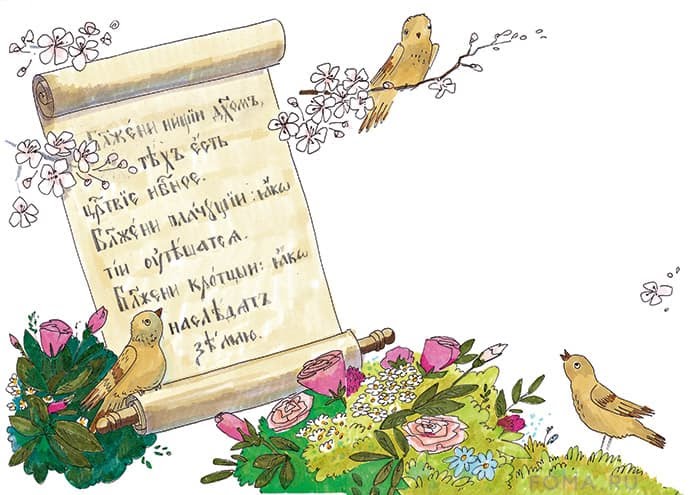 Бл҃же́ни ни́щїи дх҃омъ,
тѣ́хъ є́сть
црⷭ҇твїе нбⷭ҇ное.
Бл҃же́ни пла́чꙋщїи: ꙗ́кѡ
ті́и оутѣ́шатсѧ.
Бл҃же́ни кро́тцыи: ꙗ́кѡ
наслѣ́дѧтъ
зе́млю.
FOMA.RU